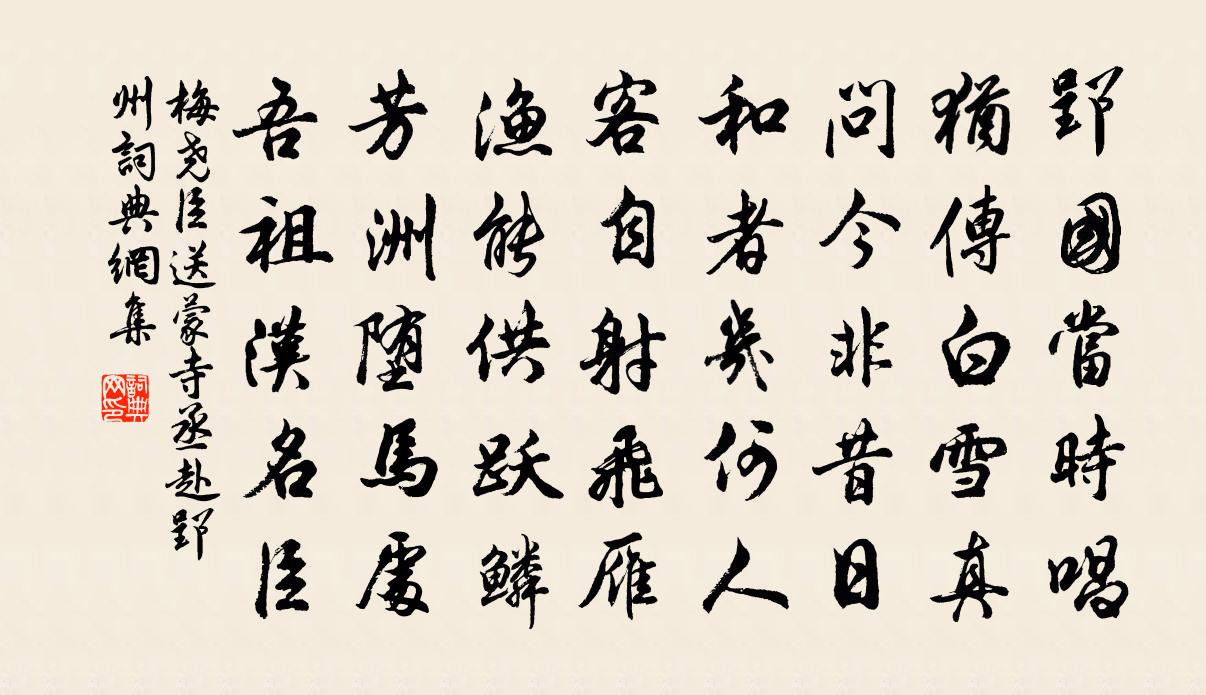 郢國當時唱
猶傳白雪真
問今非昔日
和者幾何人
客自射飛雁
漁能供跃鱗
芳洲堕馬處
吾祖漢名臣
梅尧臣送蒙寺丞赴郢
州詞典網集
詞典网印